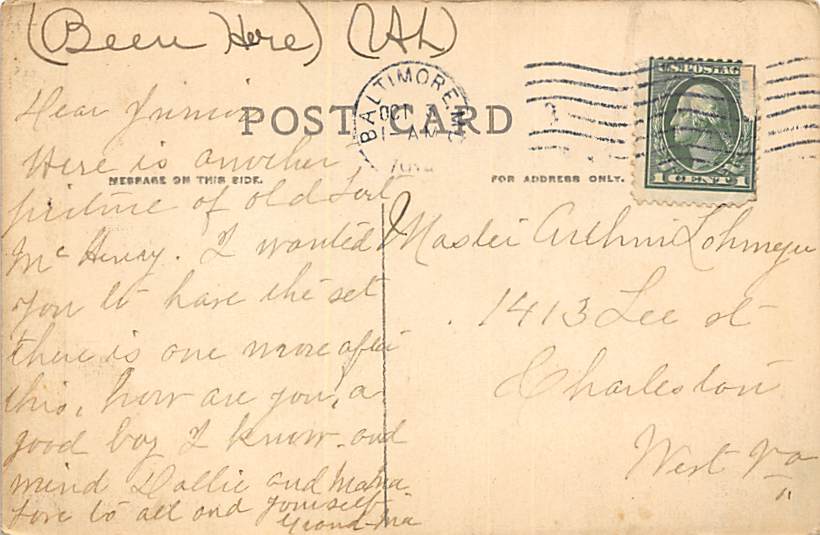 (Been Here) (AL)
BALTIMORE, MD
OCT
1 AM
U.S. POSTAGE
1 CENT 1
POST CARD
MESSAGE ON THIS SIDE.
FOR ADDRESS ONLY.
Dear Junior
Here is another
picture of old Fort
Mc Henry. I wanted
you to have the set
there is one more after
this, how are you, a
good boy I know. and
mind Dollie and Mama.
love to all and yourself
Grand-Ma
Master Arthur Lohmeyer
1413 Lee st
Charleston
West Va